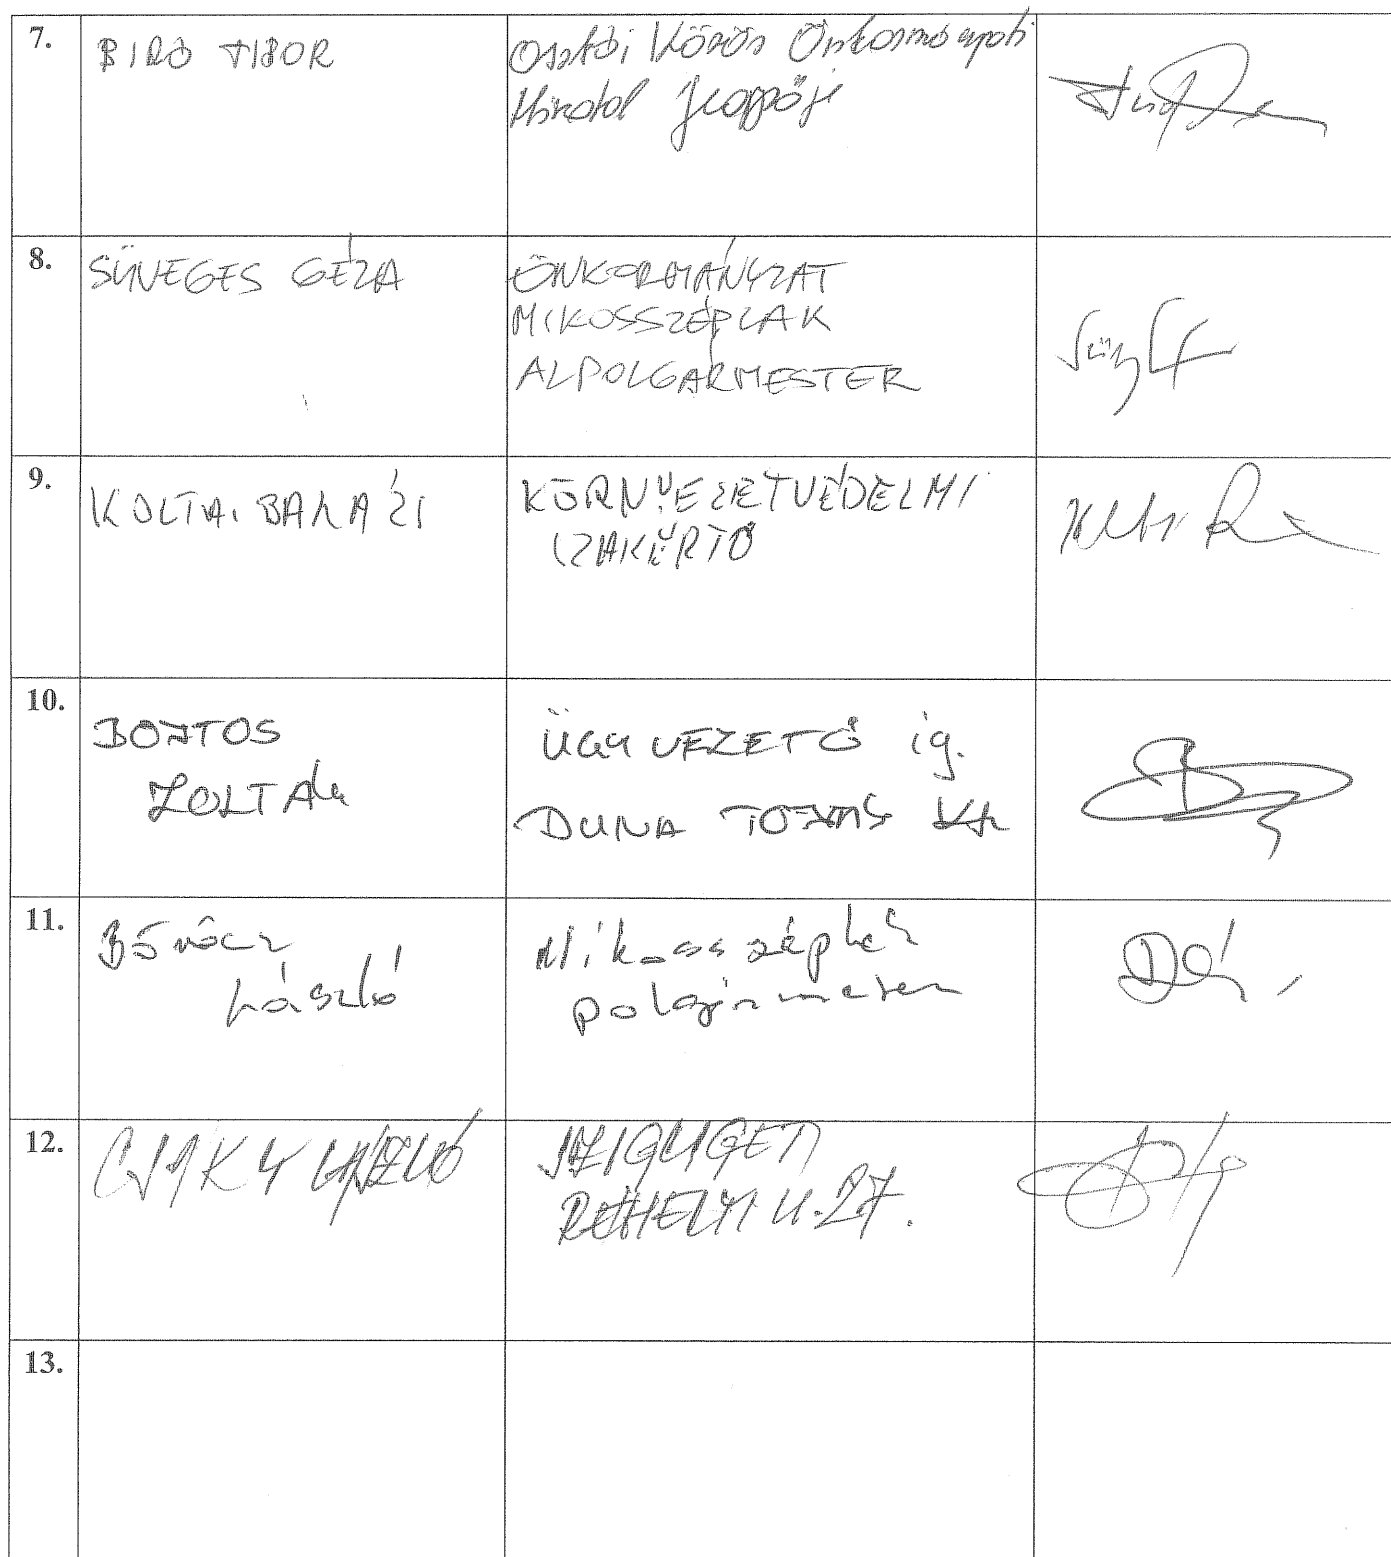 7.
BIRÓ TIBOR
Közös Önkormányzati
Hivatal Jegyzője
8.
SÜVEGES GÉZA
ÖNKORMÁNYZAT
MIKOSSZÉPLAK
ALPOLGÁRMESTER
9.
KOLTAI BALÁZS
KÖRNYEZETVÉDELMI
SZAKÉRTŐ
10.
ZOLTÁN
ÜGYVEZETŐ ig.
DUNA TOJÁS Kft
11.
László
Mikosszéplak
polgármester
12.
CSÁKY LÁSZLÓ
SZIGLIGET
U. 27.
13.